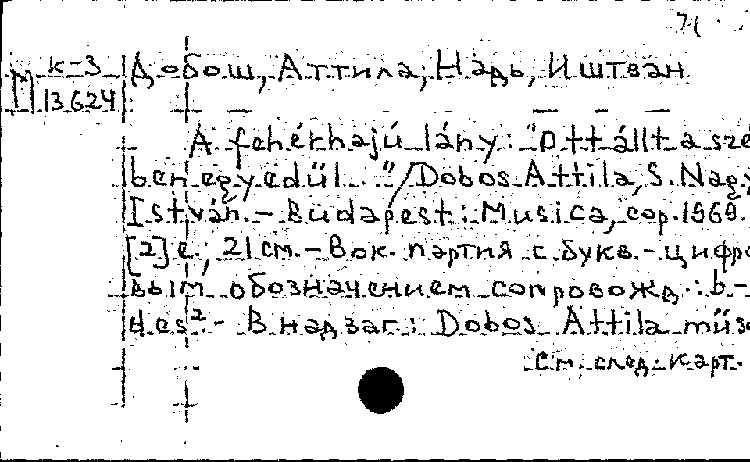 71
М к-3 Добош, Аттила; Надь, Иштван
13624
A fehérhajú lány: "Ott állt a sze
ben egyedül..."/Dobos Attila, S. Nagy
István. - Budapest: Musica, cop. 1969.
[2] с.; 21 см. - Вок. партия с букв.-цифро
вым обозначением сопровожд.: b-
des². - В надзаг.: Dobos Attila műso
См. след. карт.